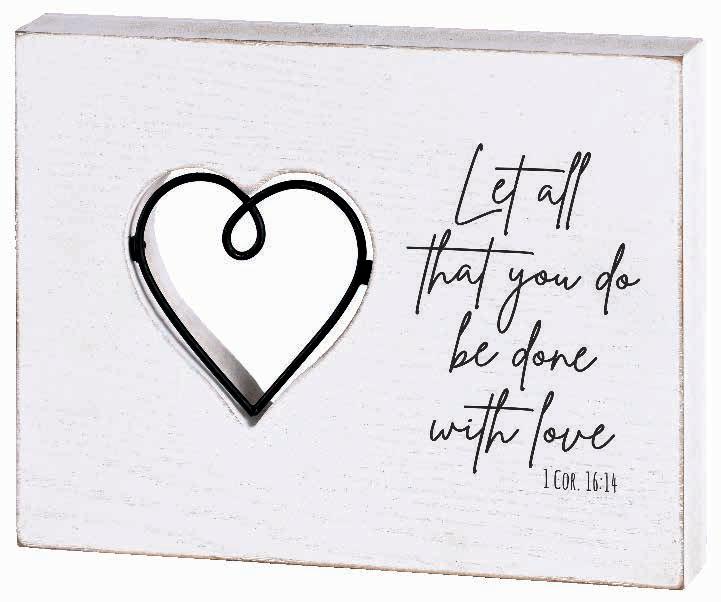 Let all
that you do
be done
with love
1 COR. 16:14